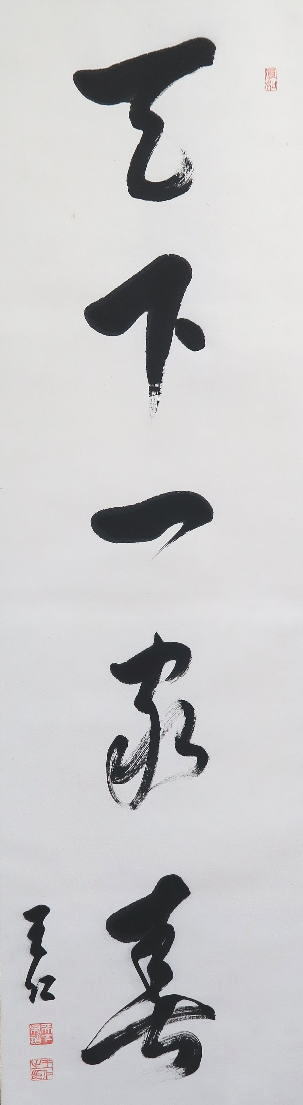 天下一家春